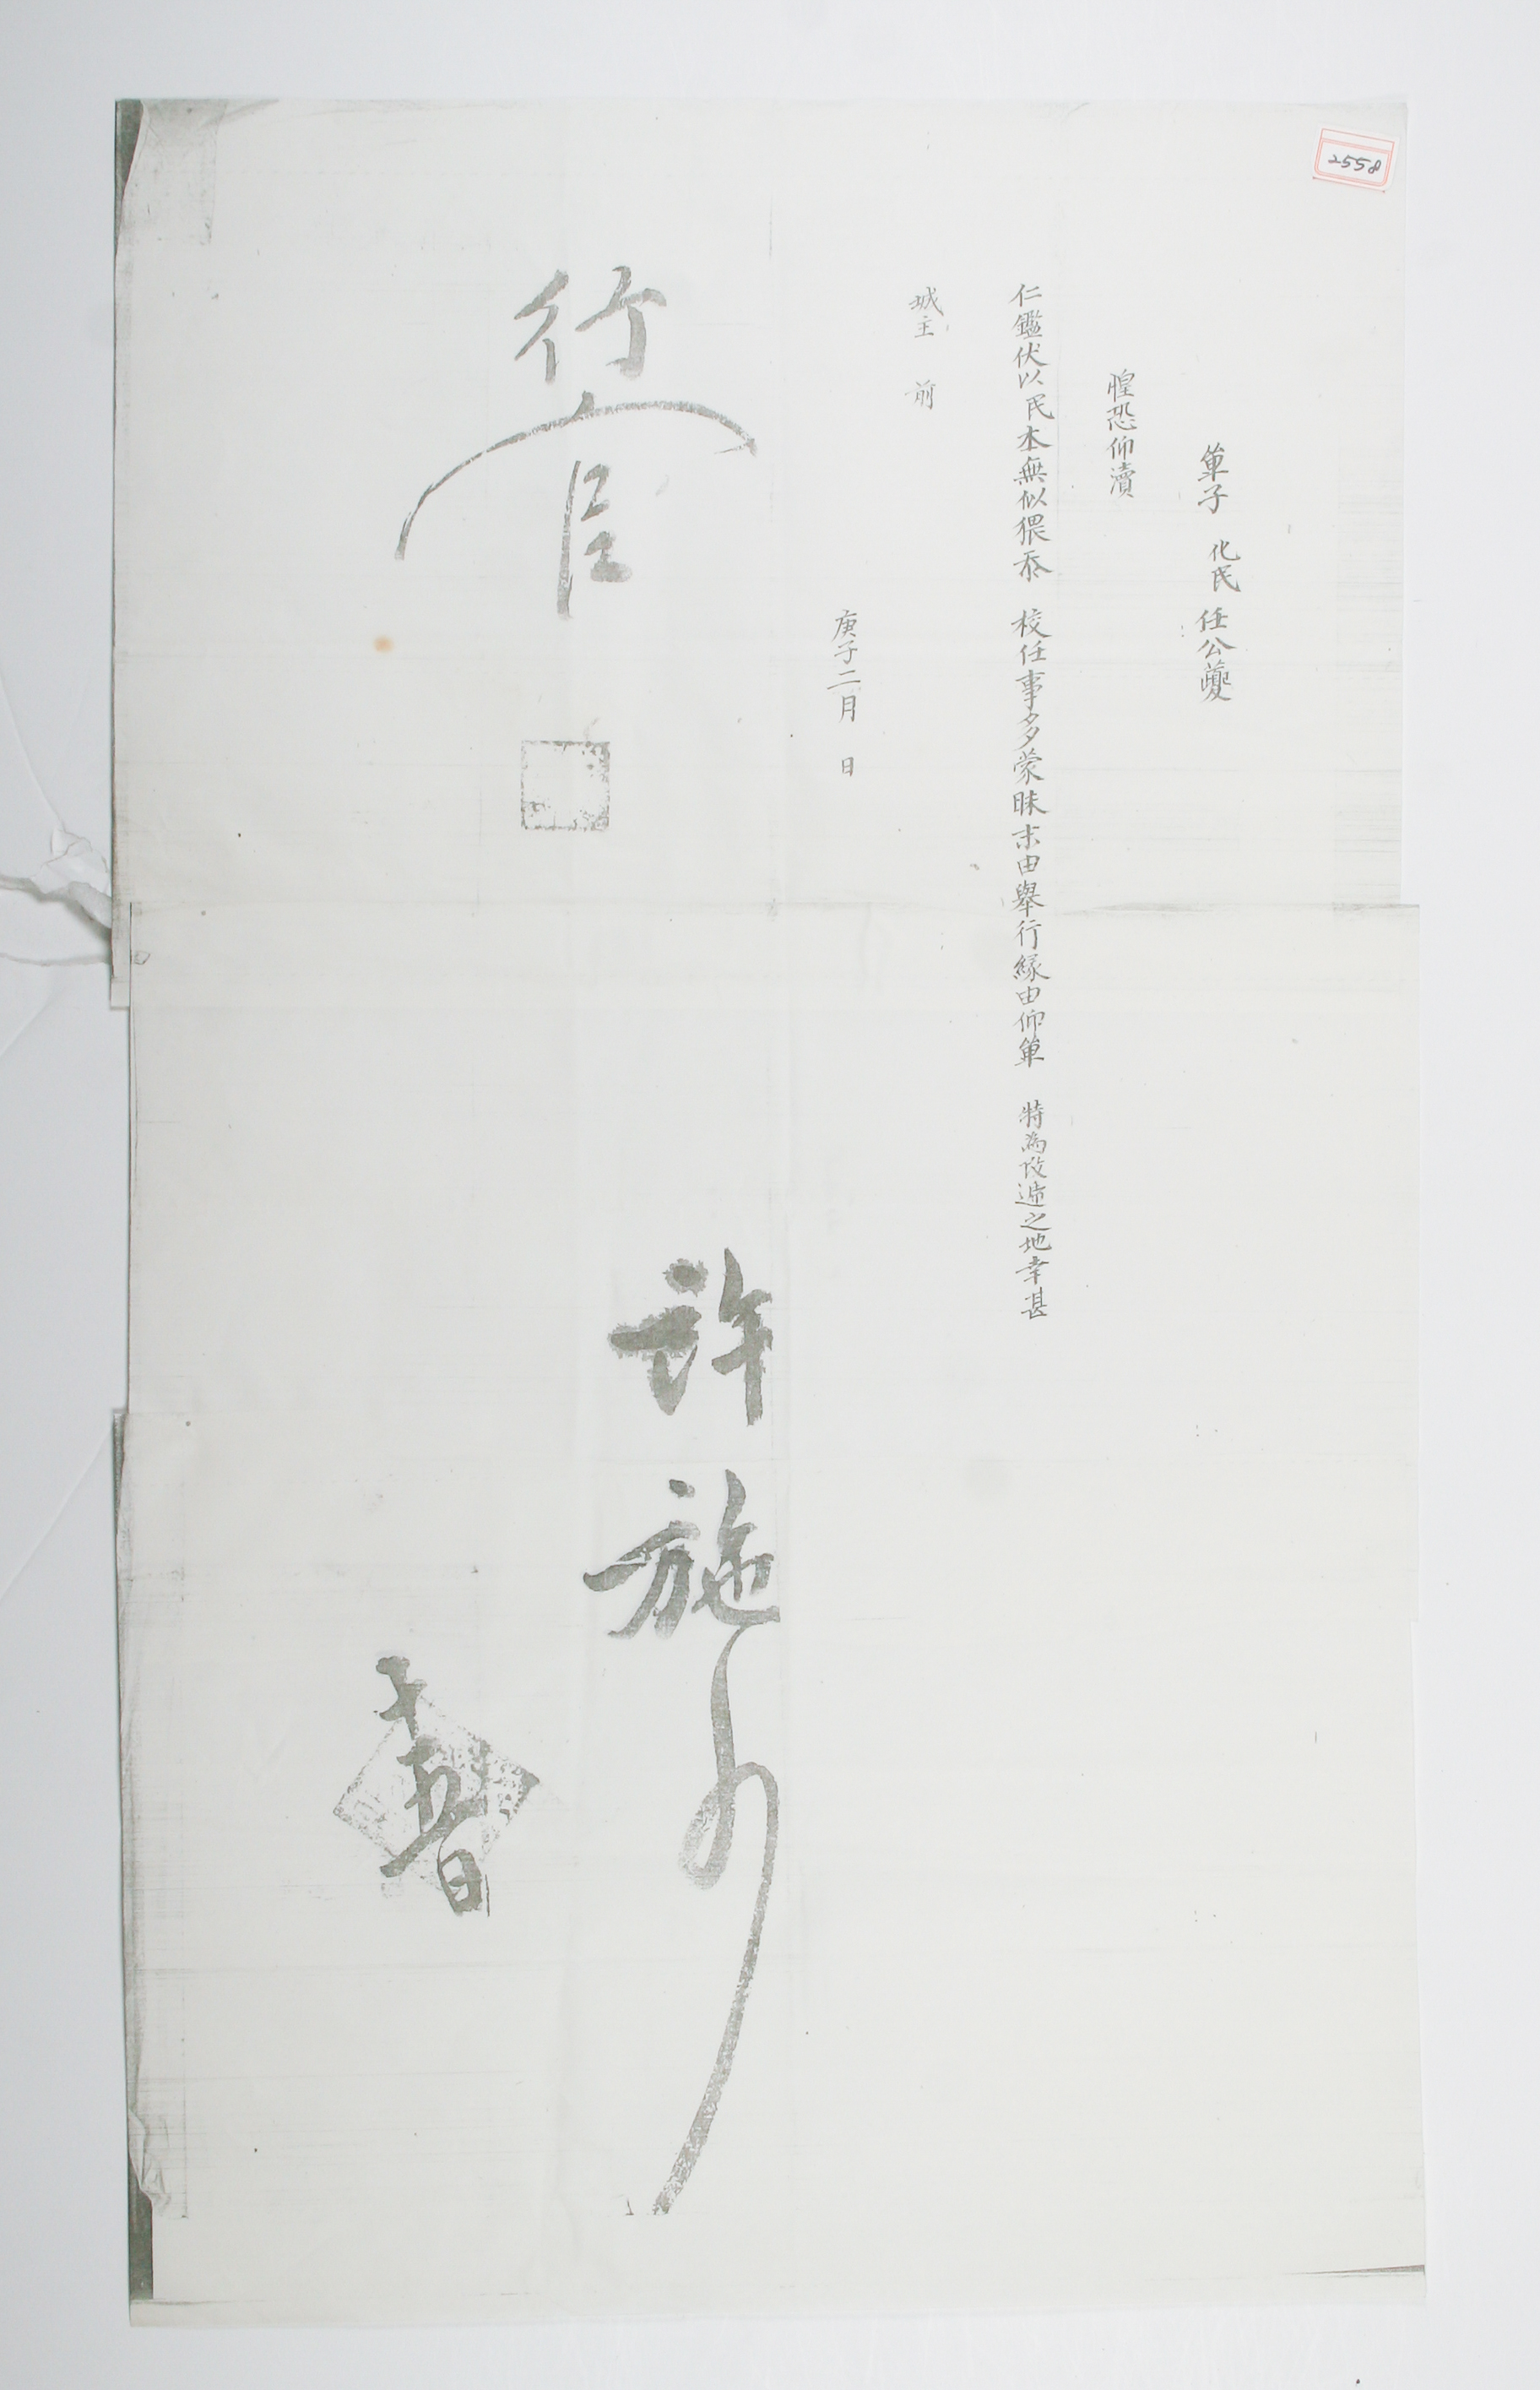 2558
單子 化民 任公夔
惶恐仰瀆
仁鑑伏以民本無似猥忝 校任事多蒙昧末由舉行緣由仰單 特爲改遞之地幸甚
城主 前
庚子二月 日
許施
行官
十五日